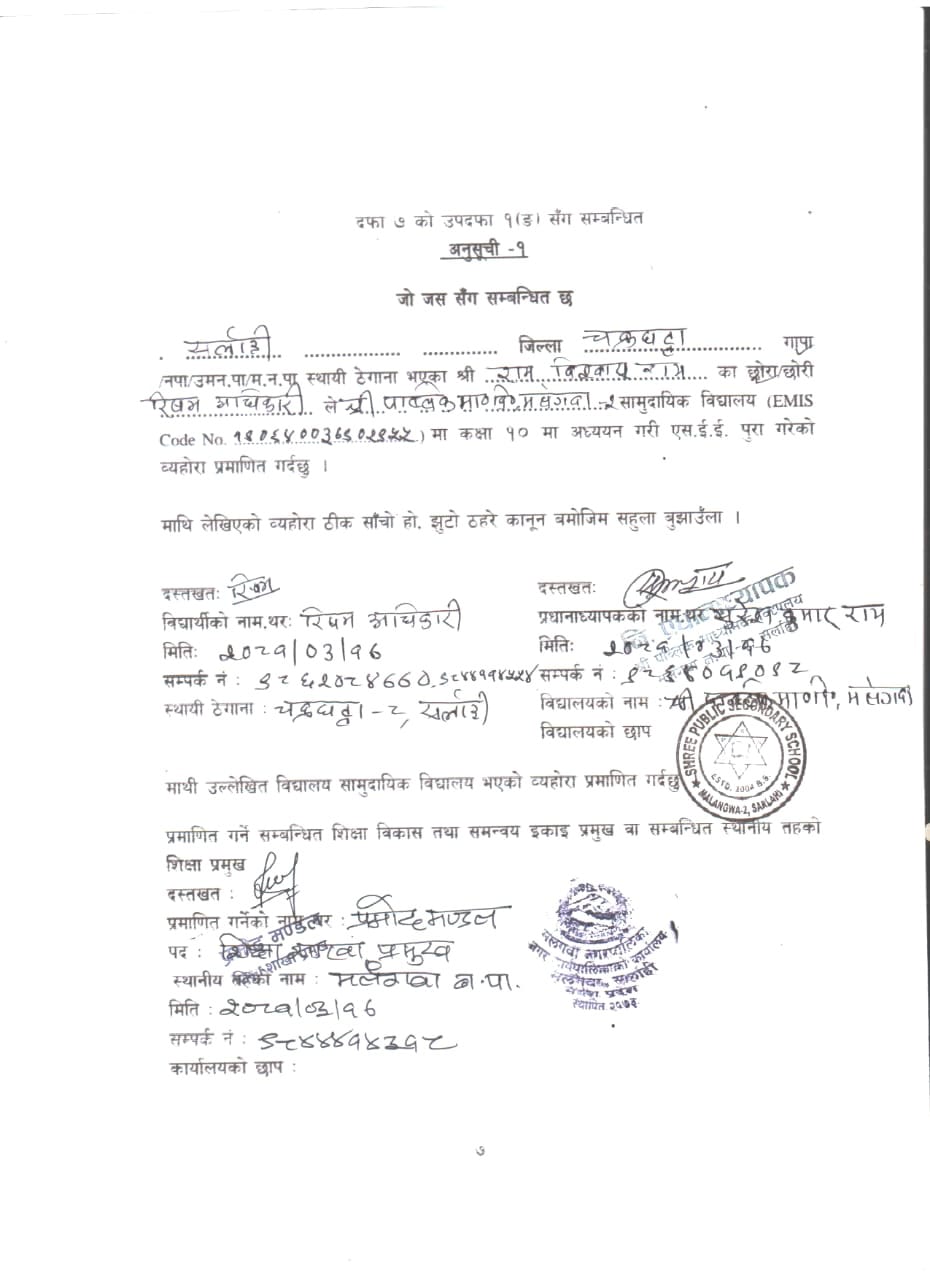 दफा ७ को उपदफा १(ङ) सँग सम्बन्धित
अनुसूची -१
जो जस सँग सम्बन्धित छ
सर्लाही जिल्ला चक्रघट्टा गापा
/नपा/उमन.पा/म.न.पा स्थायी ठेगाना भएका श्री राम का छोरा/छोरी
अधिकारी ले श्री मा०वि० मलंगवा-२ सामुदायिक विद्यालय (EMIS
Code No. ) मा कक्षा १० मा अध्ययन गरी एस.ई.ई. पुरा गरेको
व्यहोरा प्रमाणित गर्दछु ।
माथि लेखिएको व्यहोरा ठीक साँचो हो, झुटो ठहरे कानून बमोजिम सहुला बुझाउँला ।
दस्तखतः
दस्तखतः
विद्यार्थीको नाम,थरः अधिकारी
प्रधानाध्यापकको नाम,थर कुमार राम
मितिः २०८१/०३/१६
मितिः
सम्पर्क नं :
सम्पर्क नं :
स्थायी ठेगाना : चक्रघट्टा-८, सर्लाही
विद्यालयको नाम : श्री मा०वि०, मलंगवा
विद्यालयको छाप
SHREE PUBLIC SECONDARY SCHOOL
ESTD. 2004 B.S.
MALANGWA-2, SARLAHI
माथी उल्लेखित विद्यालय सामुदायिक विद्यालय भएको व्यहोरा प्रमाणित गर्दछु
प्रमाणित गर्ने सम्बन्धित शिक्षा विकास तथा समन्वय इकाइ प्रमुख वा सम्बन्धित स्थानीय तहको
शिक्षा प्रमुख
दस्तखत :
प्रमाणित गर्नेको नाम थर : प्रमोद मण्डल
पद : शिक्षा शाखा प्रमुख
स्थानीय तहको नाम : मलंगवा न.पा.
मिति : २०८१/०३/१६
सम्पर्क नं : ९८४४१४३१८
कार्यालयको छाप :
मलंगवा नगरपालिका
नगर कार्यपालिकाको कार्यालय
मलंगवा, सर्लाही
मधेश प्रदेश
स्थापित २०४३
७